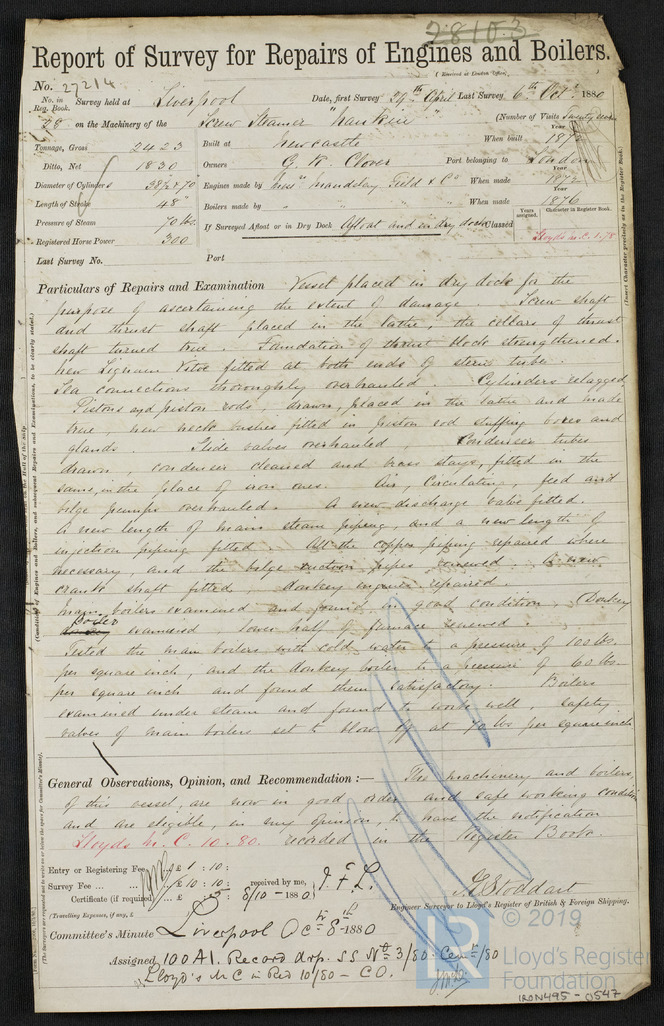 28103
Report of Survey for Repairs of Engines and Boilers.
(Received at London Office,
No. 27214
No. in Reg. Book. Survey held at Liverpool Date, first Survey 29th April Last Survey 6th Octr 1880
28 on the Machinery of the Screw Steamer "Nankin" (Number of Visits Twenty
Tonnage, Gross 2423 Built at Newcastle When built Year 187
Ditto, Net 1830 Owners G. R. Clover Port belonging to London
Diameter of Cylinders 38½ x 70" Engines made by Messrs Maudslay Field & Co When made Year 1872
Length of Stroke 48" Boilers made by " " " When made Year 1876
Pressure of Steam 70 lbs. If Surveyed Afloat or in Dry Dock Afloat and in dry dock Classed Years assigned. Character in Register Book.
Registered Horse Power 300 Lloyds M.C. 1.78
Last Survey No. Port
Particulars of Repairs and Examination Vessel placed in dry dock for the
purpose of ascertaining the extent of damage. Screw shaft
and thrust shaft placed in the lathe, the collars of thrust
shaft turned true. Foundation of thrust block strengthened.
new Lignum Vitae fitted at both ends of stern tube.
Sea connections thoroughly overhauled. Cylinders relagged,
Pistons and piston rods, drawn, placed in the lathe and made
true, new neck bushes fitted in piston rod stuffing boxes and
glands. Slide valves overhauled, Condenser tubes
drawn, condenser cleaned and brass stays, fitted in the
same, in the place of iron ones. Air, Circulating, feed and
bilge pumps overhauled. A new discharge valve fitted.
A new length of main steam piping, and a new length of
injection piping fitted. All the copper piping repaired where
necessary, and the bilge suction pipes renewed. A new
crank shaft fitted, donkey engines repaired.
Main boilers examined and found in good condition, Donkey
boiler examined, lower half of furnace renewed.
Tested the main boilers with cold water to a pressure of 100 lbs.
per square inch, and the donkey boiler to a pressure of 60 lbs.
per square inch and found them satisfactory. Boilers
examined under steam and found to work well, safety
valves of main boilers set to blow off at 70 lbs per square inch
General Observations, Opinion, and Recommendation :— The machinery and boilers,
of this vessel, are now in good order and safe working condition
and are eligible, in my opinion, to have the notification
Lloyds M.C. 10.80. recorded in the Register Book.
Entry or Registering Fee £ 1 : 10 :
Survey Fee ... £ 10 : 10 : received by me, J.F.L.
Certificate (if required) ... £ : 5 : 8/10 - 1880
(Travelling Expenses, if any, £
G. Stoddart
Engineer Surveyor to Lloyd's Register of British & Foreign Shipping.
Committee's Minute Liverpool Octr 8th 1880
Assigned 100A1. Record drp. SS No 3/80
"Lloyd's MC in Red 10/80 - CO.
© 2019
LR
Lloyd's Register
Foundation
IRON495-0547